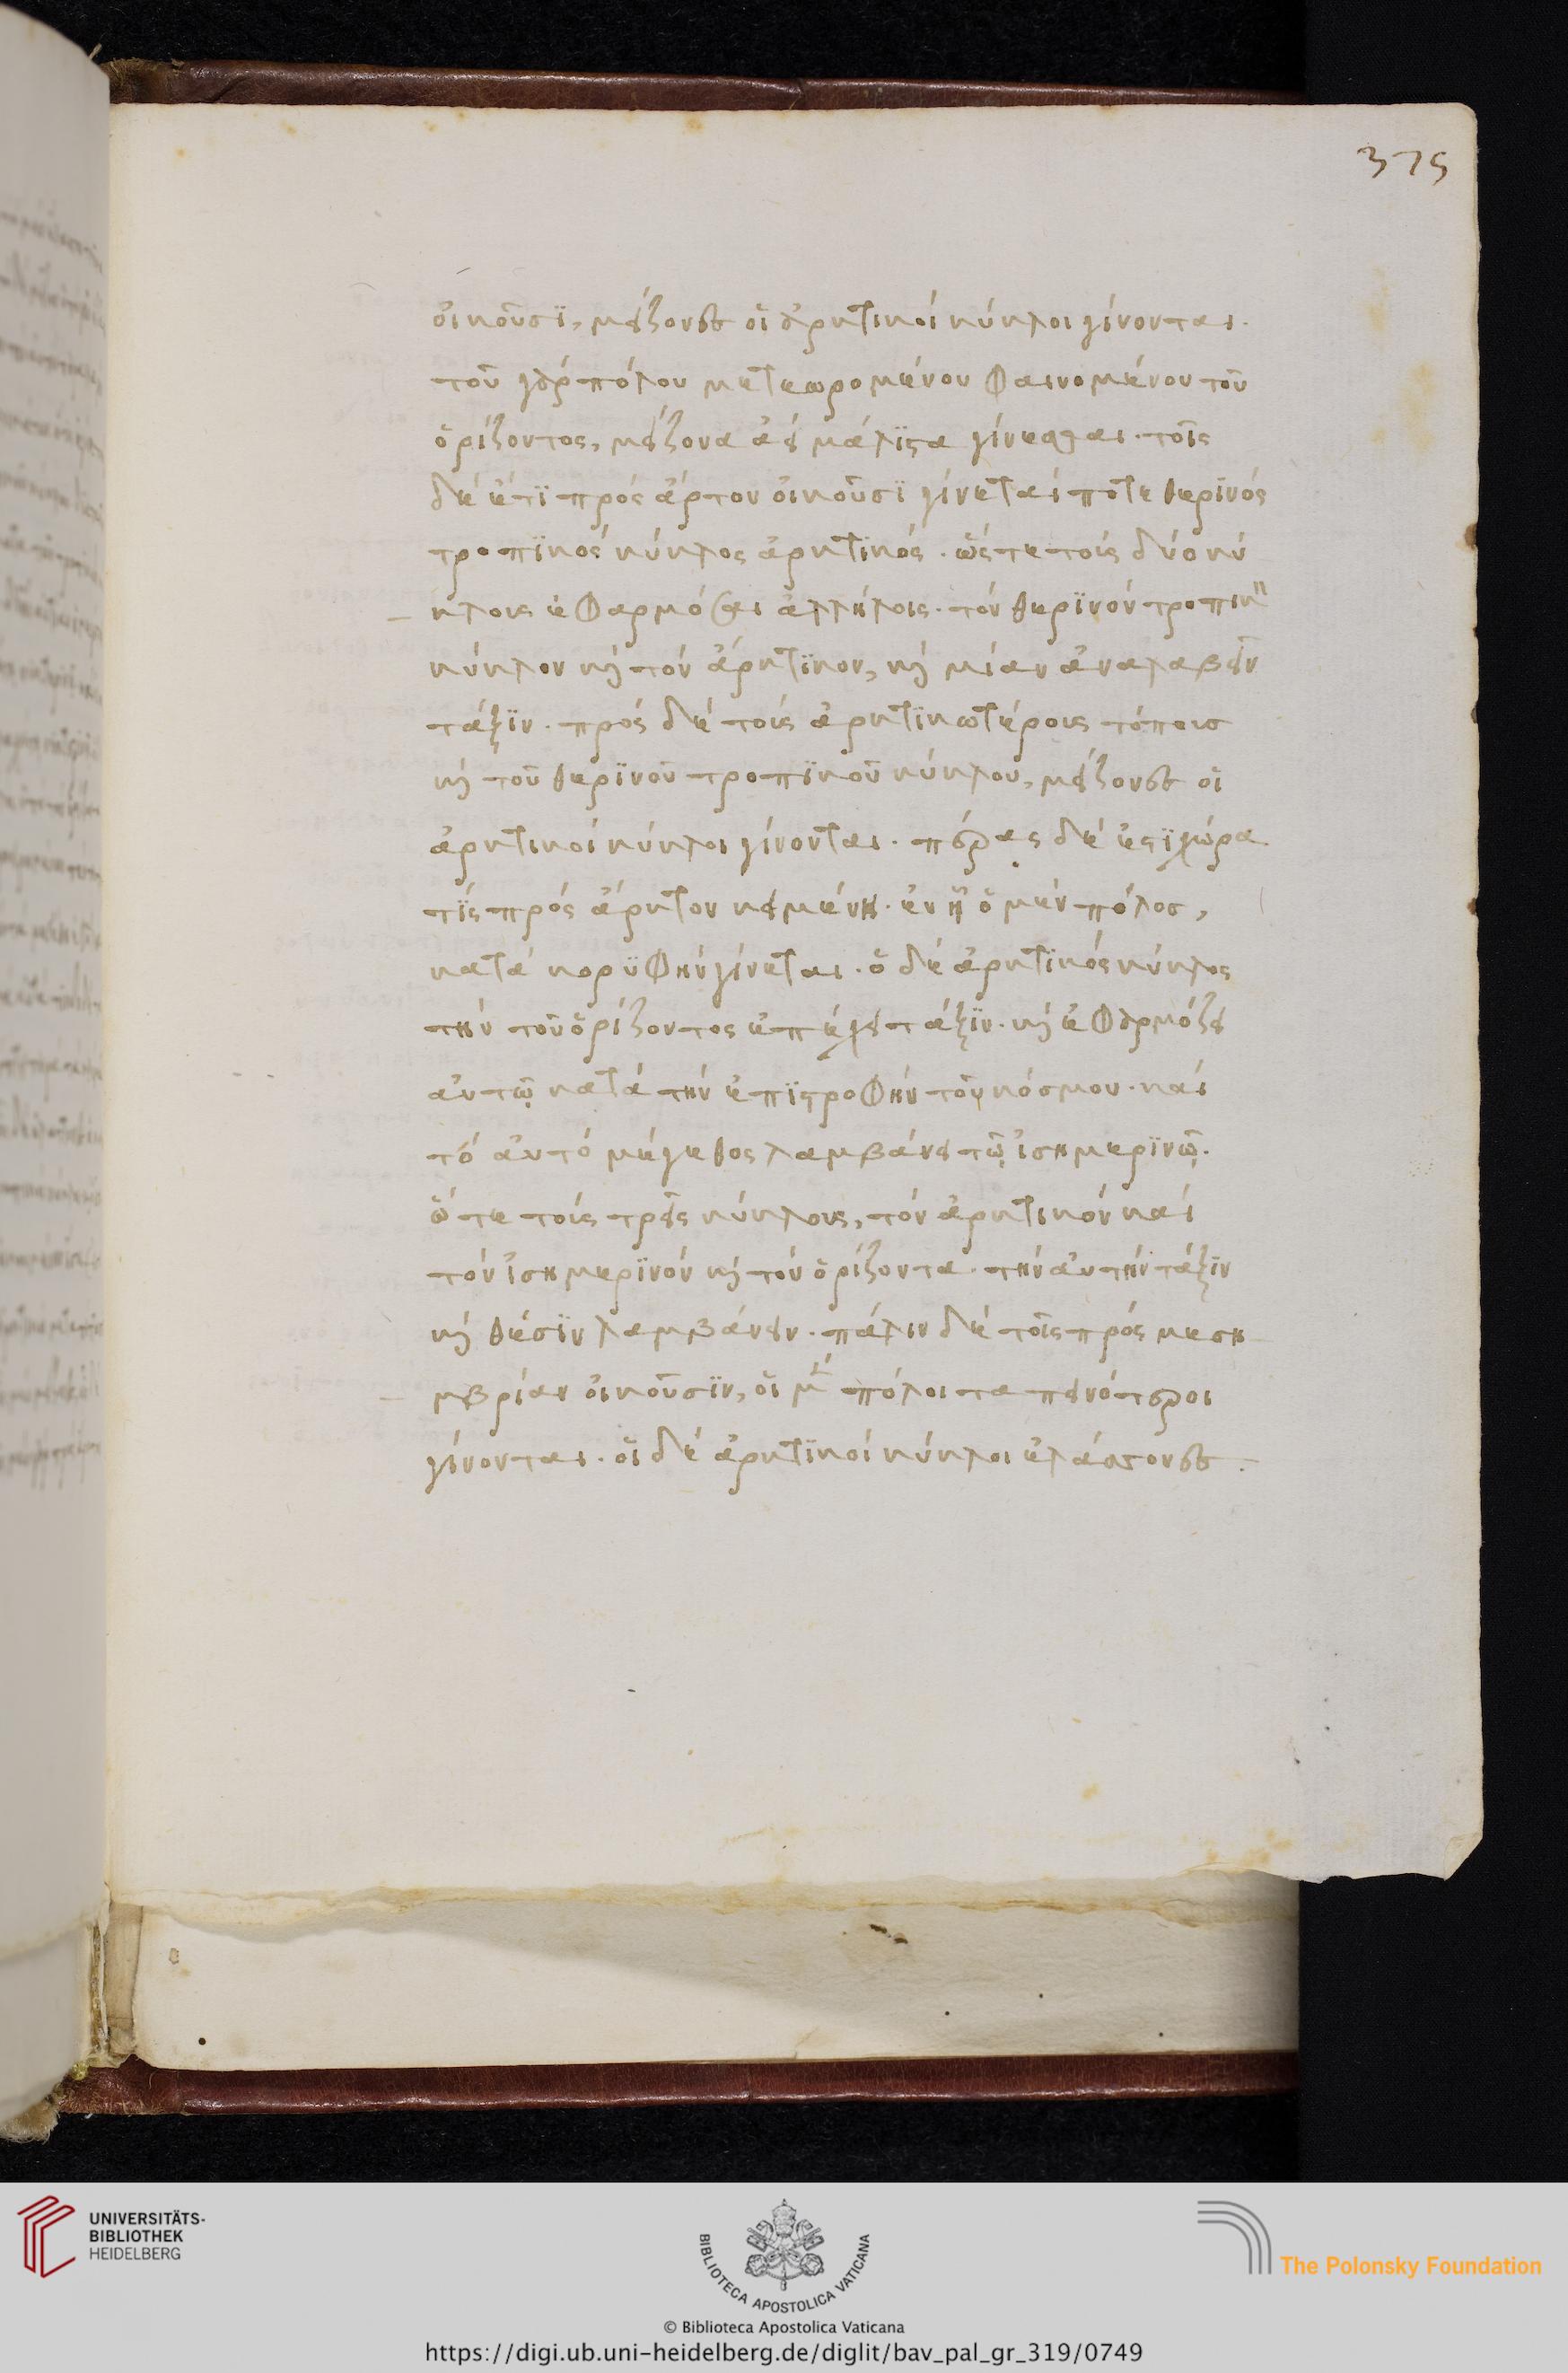 375
οἰκοῦσϊ, μείζονες οἱ ἀρκτικοί κύκλοι γίνονται.
τοῦ γάρ πόλου μετεωρομένου φαινομένου τοῦ
ὁρίζοντος, μείζονα ἀεί μάλϊστα γίνεσθαι. τοῖς
δέ ἔτϊ πρός ἄρτον οἰκοῦσϊ γίνεταί ποτε θερϊνός
τροπϊκός κύκλος ἀρκτϊκός. ὥστε τούς δύο κύ
κλους ἐφαρμόσαι ἀλλήλοις. τόν θερϊνόν τροπικ
κύκλον καί τόν ἀρκτϊκον, καί μίαν ἀναλαβεῖν
τάξϊν. πρός δέ τούς ἀρκτϊκωτέρους τόπους
καί τοῦ θερϊνοῦ τροπϊκοῦ κύκλου, μείζονες οἱ
ἀρκτικοί κύκλοι γίνονται. πέρας δέ ἐστϊ χώρα
τϊς πρός ἄρκτον κειμένη. ἐν ᾗ ὁ μέν πόλος,
κατά κορϋφήν γίνεται. ὁ δέ ἀρκτϊκός κύκλος
τήν τοῦ ὁρίζοντος ἐπέχει τάξϊν. καί ἐφαρμόζει
αὐτῷ κατά τήν ἐπϊστροφήν τοῦ κόσμου. καί
τό αὐτό μέγεθος λαμβάνει τῷ ἰσημερϊνῷ.
ὥτε τούς τρεῖς κύκλους, τόν ἀρκτικόν καί
τόν ἰσημερϊνόν καί τόν ὁρίζοντα. τήν αὐτήν τάξϊν
καί θέσϊν λαμβάνειν. πάλιν δέ τοῖς πρός μεση
μβρίαν οἰκοῦσϊν, οἱ μέν πόλοι ταπεινότεροι
γίνονται. οἱ δέ ἀρκτϊκοί κύκλοι ἐλάσσονες.
UNIVERSITÄTS-
BIBLIOTHEK
HEIDELBERG
BIBLIOTECA APOSTOLICA VATICANA
The Polonsky Foundation
© Biblioteca Apostolica Vaticana
https://digi.ub.uni-heidelberg.de/diglit/bav_pal_gr_319/0749